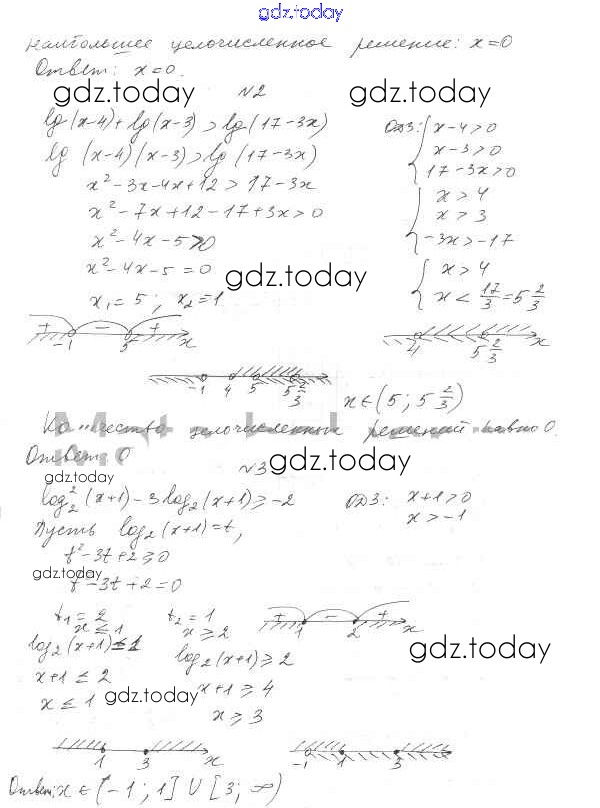 gdz.today
наибольшее целочисленное решение: x=0
Ответ: x=0.
gdz.today gdz.today
№2
lg(x-4)+lg(x-3)>lg(17-3x)
lg(x-4)(x-3)>lg(17-3x)
x²-3x-4x+12>17-3x
x²-7x+12-17+3x>0
x²-4x-5>0
x²-4x-5=0
x₁=5; x₂=1
ОДЗ: { x-4>0
x-3>0
17-3x>0
{ x>4
x>3
-3x>-17
{ x>4
x< 17/3 = 5 2/3
gdz.today
+ - +
-1 5 x
4 5 2/3 x
-1 4 5 5 2/3
x∈(5; 5 2/3)
Количество целочисленных решений равно 0.
Ответ 0
gdz.today
№3
gdz.today
log₂²(x+1)-3log₂(x+1)≥-2
ОДЗ: x+1>0
x>-1
Пусть log₂(x+1)=t,
t²-3t+2≥0
gdz.today
t²-3t+2=0
t₁=2 t₂=1
x≤1 x≥2
+ - +
1 2 x
log₂(x+1)≤1
x+1≤2
x≤1
log₂(x+1)≥2
x+1≥4
x≥3
gdz.today
gdz.today
1 3 x
-1 1 3
Ответ: x∈(-1; 1]∪[3; ∞)